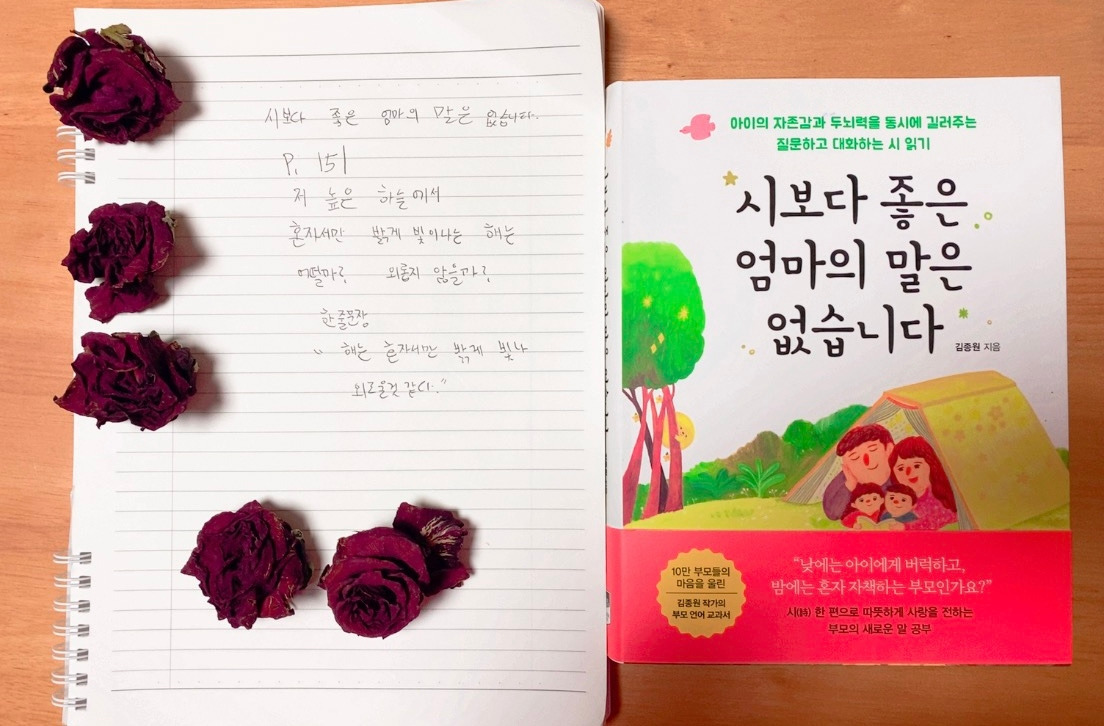 시보다 좋은 엄마의 말은 없습니다.
P. 151
저 높은 하늘에서
혼자서만 밝게 빛이나는 해는
어떨까? 외롭지 않을까?
한줄문장
" 해는 혼자서만 밝게 빛나
외로울것 같다."
아이의 자존감과 두뇌력을 동시에 길러주는
질문하고 대화하는 시 읽기
시보다 좋은
엄마의 말은
없습니다
김종원 지음
10만 부모들의
마음을 울린
김종원 작가의
부모 언어 교과서
“낮에는 아이에게 버럭하고,
밤에는 혼자 자책하는 부모인가요?”
시(詩) 한 편으로 따뜻하게 사랑을 전하는
부모의 새로운 말 공부